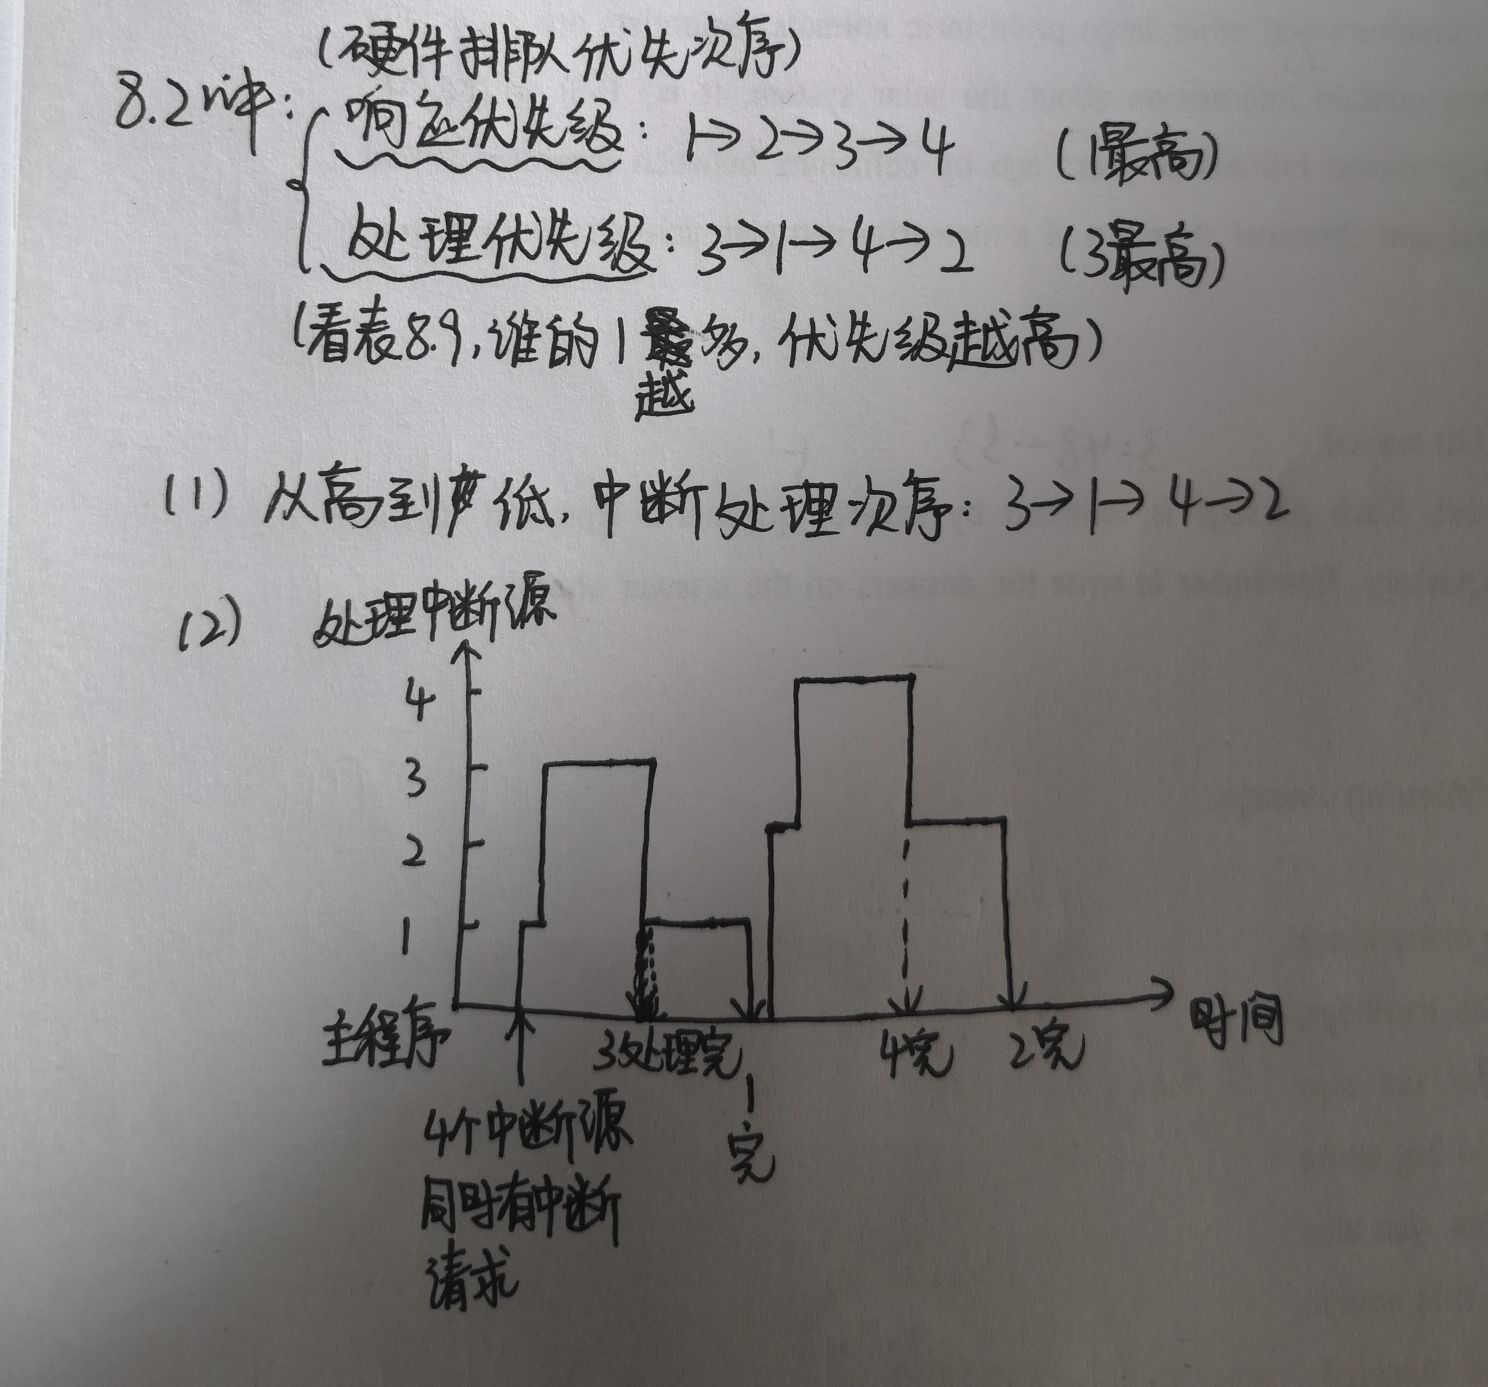 (硬件排队优先次序)
8.2 
响应优先级: 1→2→3→4 (1最高)
处理优先级: 3→1→4→2 (3最高)
(看表8.9,谁的1越多,优先级越高)
(1) 从高到低,中断处理次序: 3→1→4→2
(2) 处理中断源
4
3
2
1
主程序
3处理完
1完
4完
2完
时间
4个中断源
同时有中断
请求